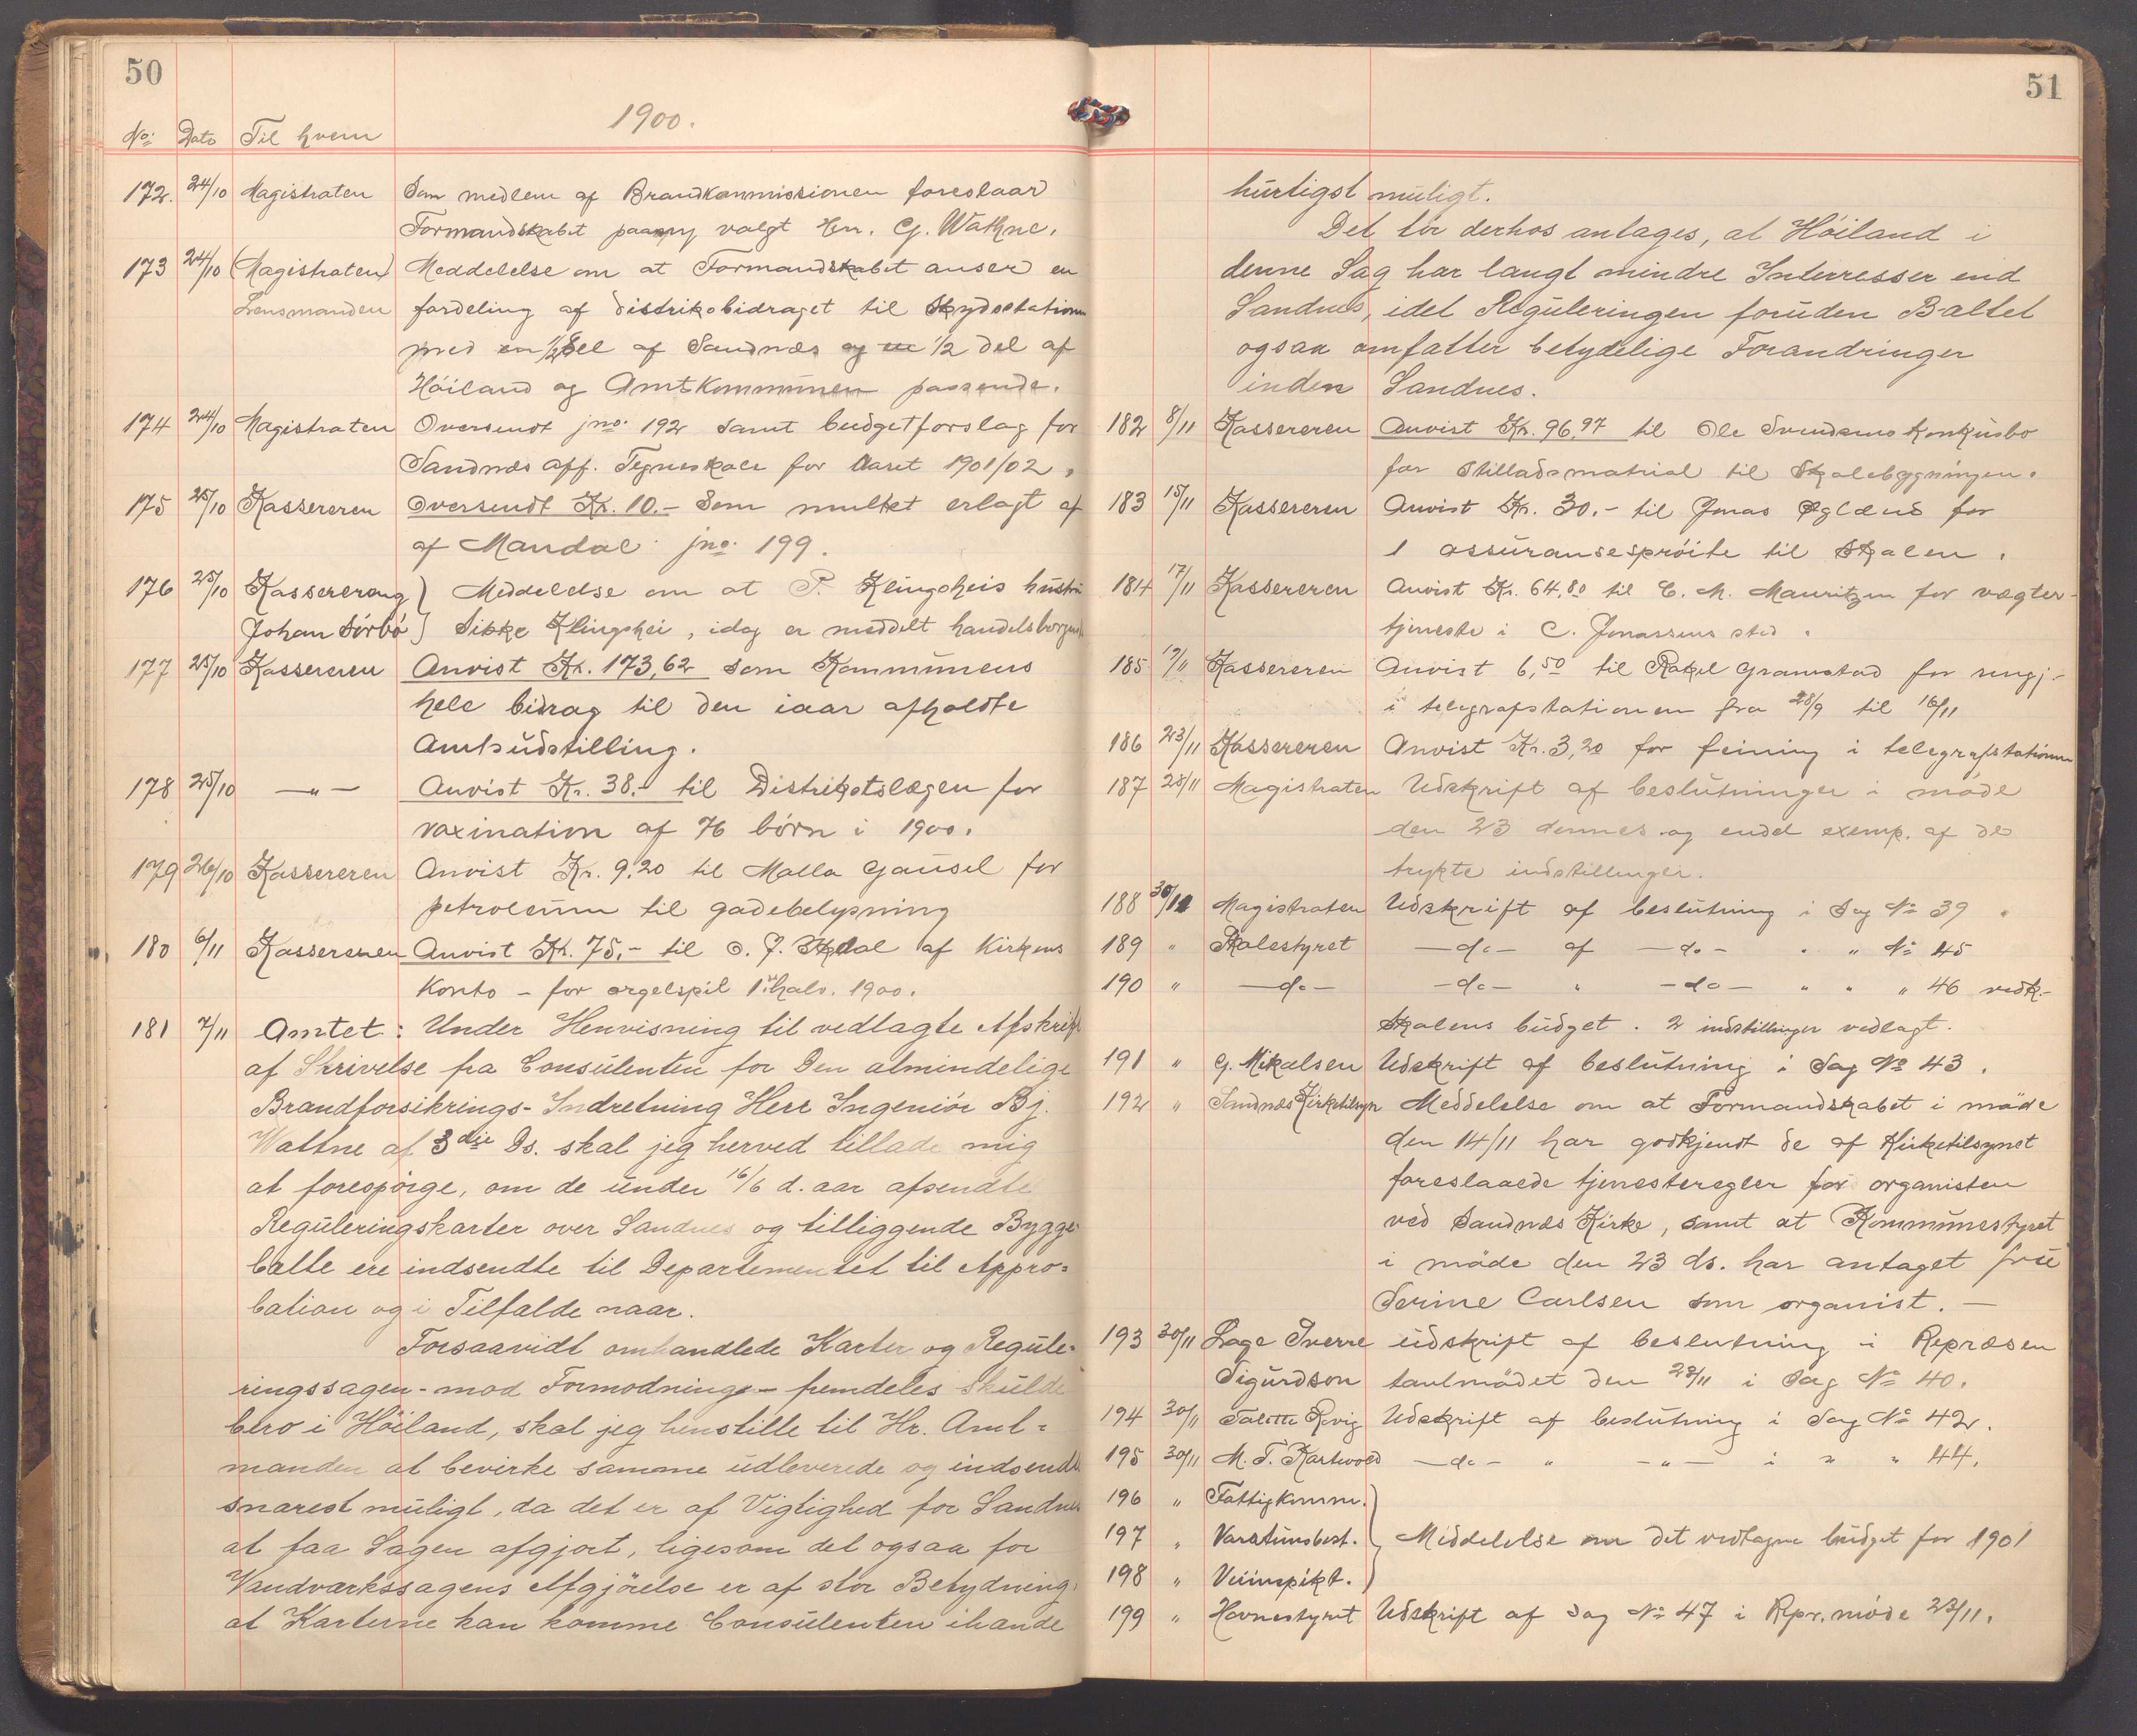 50
1900.
No: Dato Til hvem
172. 24/10 Magistraten Som medlem af Brandkommissionen foreslaar
Formandskabet paany valgt Hrr. G. Wathne.
173 24/10 (Magistraten) Meddelelse om at Formandskabet anser en
Lensmanden fordeling af distriksbidraget til Skydsstationen
med en 1/2 Del af Sandnæs og en 1/2 del af
Höiland og Amtskommunen passende.
174 24/10 Magistraten Oversendt jno. 192 samt budgetforslag for
Sandnæs aff. Tegneskole for Aaret 1901/02.
175 25/10 Kassereren Oversendt Kr. 10.- Som mulket erlagt af
af Mandal jno. 199.
176 25/10 Kasserer og } Meddelelse om at P. Klingsheis hustru
Johan Sörbö } Sikke Klingshei, idag er meddelt handelsborgerb
177 25/10 Kassereren Anvist Kr. 173,62 som Kommunens
hele bidrag til den iaar afholdte
Amtsudstilling.
178 25/10 —"— Anvist Kr. 38.- til Distriktslægen for
vaxination af 76 börn i 1900.
179 26/10 Kassereren Anvist Kr. 9.20 til Malla Gausel for
petroleum til gadebelysning
180 6/11 Kassereren Anvist Kr. 75,- til O. J. Skdal af Kirkens
Konto - for orgelspil 1ste halv. 1900.
181 7/11 Amtet: Under Henvisning til vedlagte Afskrift
af Skrivelse fra Consulenten for Den almindelige
Brandforsikrings-Indretning Herr Ingeniör Bj.
Wattne af 3die Ds. skal jeg herved tillade mig
at forespörge, om de under 16/6 d. aar afsendte
Reguleringskarter over Sandnes og tilliggende Bygge-
bælte ere indsendte til Departementet til Appro=
bation og i Tilfælde naar.
Forsaavidt omhandlede Karter og Regule=
ringssagen - mod Formodning - fremdeles skulde
bero i Höiland, skal jeg henstille til Hr. Amt=
manden at bevirke samme udleverede og indsendt
snarest muligt, da det er af Vigtighed for Sandnes
at faa Sagen afgjort, ligesom det ogsaa for
Vandværkssagens Afgjörelse er af stor Betydning,
at Karterne kan komme Consulenten ihænde
51
hurtigst muligt.
Det tör derhos antages, at Höiland i
denne Sag har langt mindre Interresser end
Sandnes, idet Reguleringen foruden Bæltet
ogsaa omfatter betydelige Forandringer
inden Sandnes.
182 8/11 Kassereren Anvist Kr. 96,97 til Ole Svendsens Konkursbo
for Stilladsmatrial til Skolebygningen.
183 15/11 Kassereren Anvist Kr. 30.- til Jonas Øglænd for
1 assuransespröite til Skolen.
184 17/11 Kassereren Anvist Kr. 64,80 til E. M. Mauritzen for vægter-
tjeneste i C. Jonassens sted.
185 19/11 Kassereren Anvist 6,50 til Rakel Gramstad for rengj.-
i telegrafstationen fra 28/9 til 16/11
186 23/11 Kassereren Anvist Kr. 3,20 for feining i telegrafstationen
187 28/11 Magistraten Udskrift af beslutninger i möde
den 23 dennes og endel exemp. af de
trykte indstillinger.
188 30/11 Magistraten Udskrift af beslutning i Sag No 39.
189 " Skolestyret —do— af —do— . " No 45
190 " —do— —do— " —do— " " " 46 vedk.-
Skolens budget. 2 indstillinger vedlagt.
191 " G. Mikalsen Udskrift af beslutning i Sag No 43.
192 " Sandnæs Kirketilsyn Meddelelse om at Formandskabet i möde
den 14/11 har godkjendt de af Kirketilsynet
foreslaaede tjenesteregler for organisten
ved Sandnæs Kirke, samt at Kommunestyret
i möde den 23 ds. har antaget frü
Serine Carlsen som organist. —
193 30/11 Lage Sverre udskrift af beslutning i Repræsen
Sigurdson tantmödet den 23/11 i Sag No 40.
194 30/11 Talette Rovig Udskrift af beslutning i Sag No 42.
195 30/11 M. T. Kartevold —do— " —"— i " " 44.
196 " Fattigkomm. }
197 " Varatunsbest. } Meddelelse om det vedtagne budget for 1901
198 " Veiinspikt. }
199 " Havnestyret Udskrift af Sag No 47 i Rpr. möde 23/11.